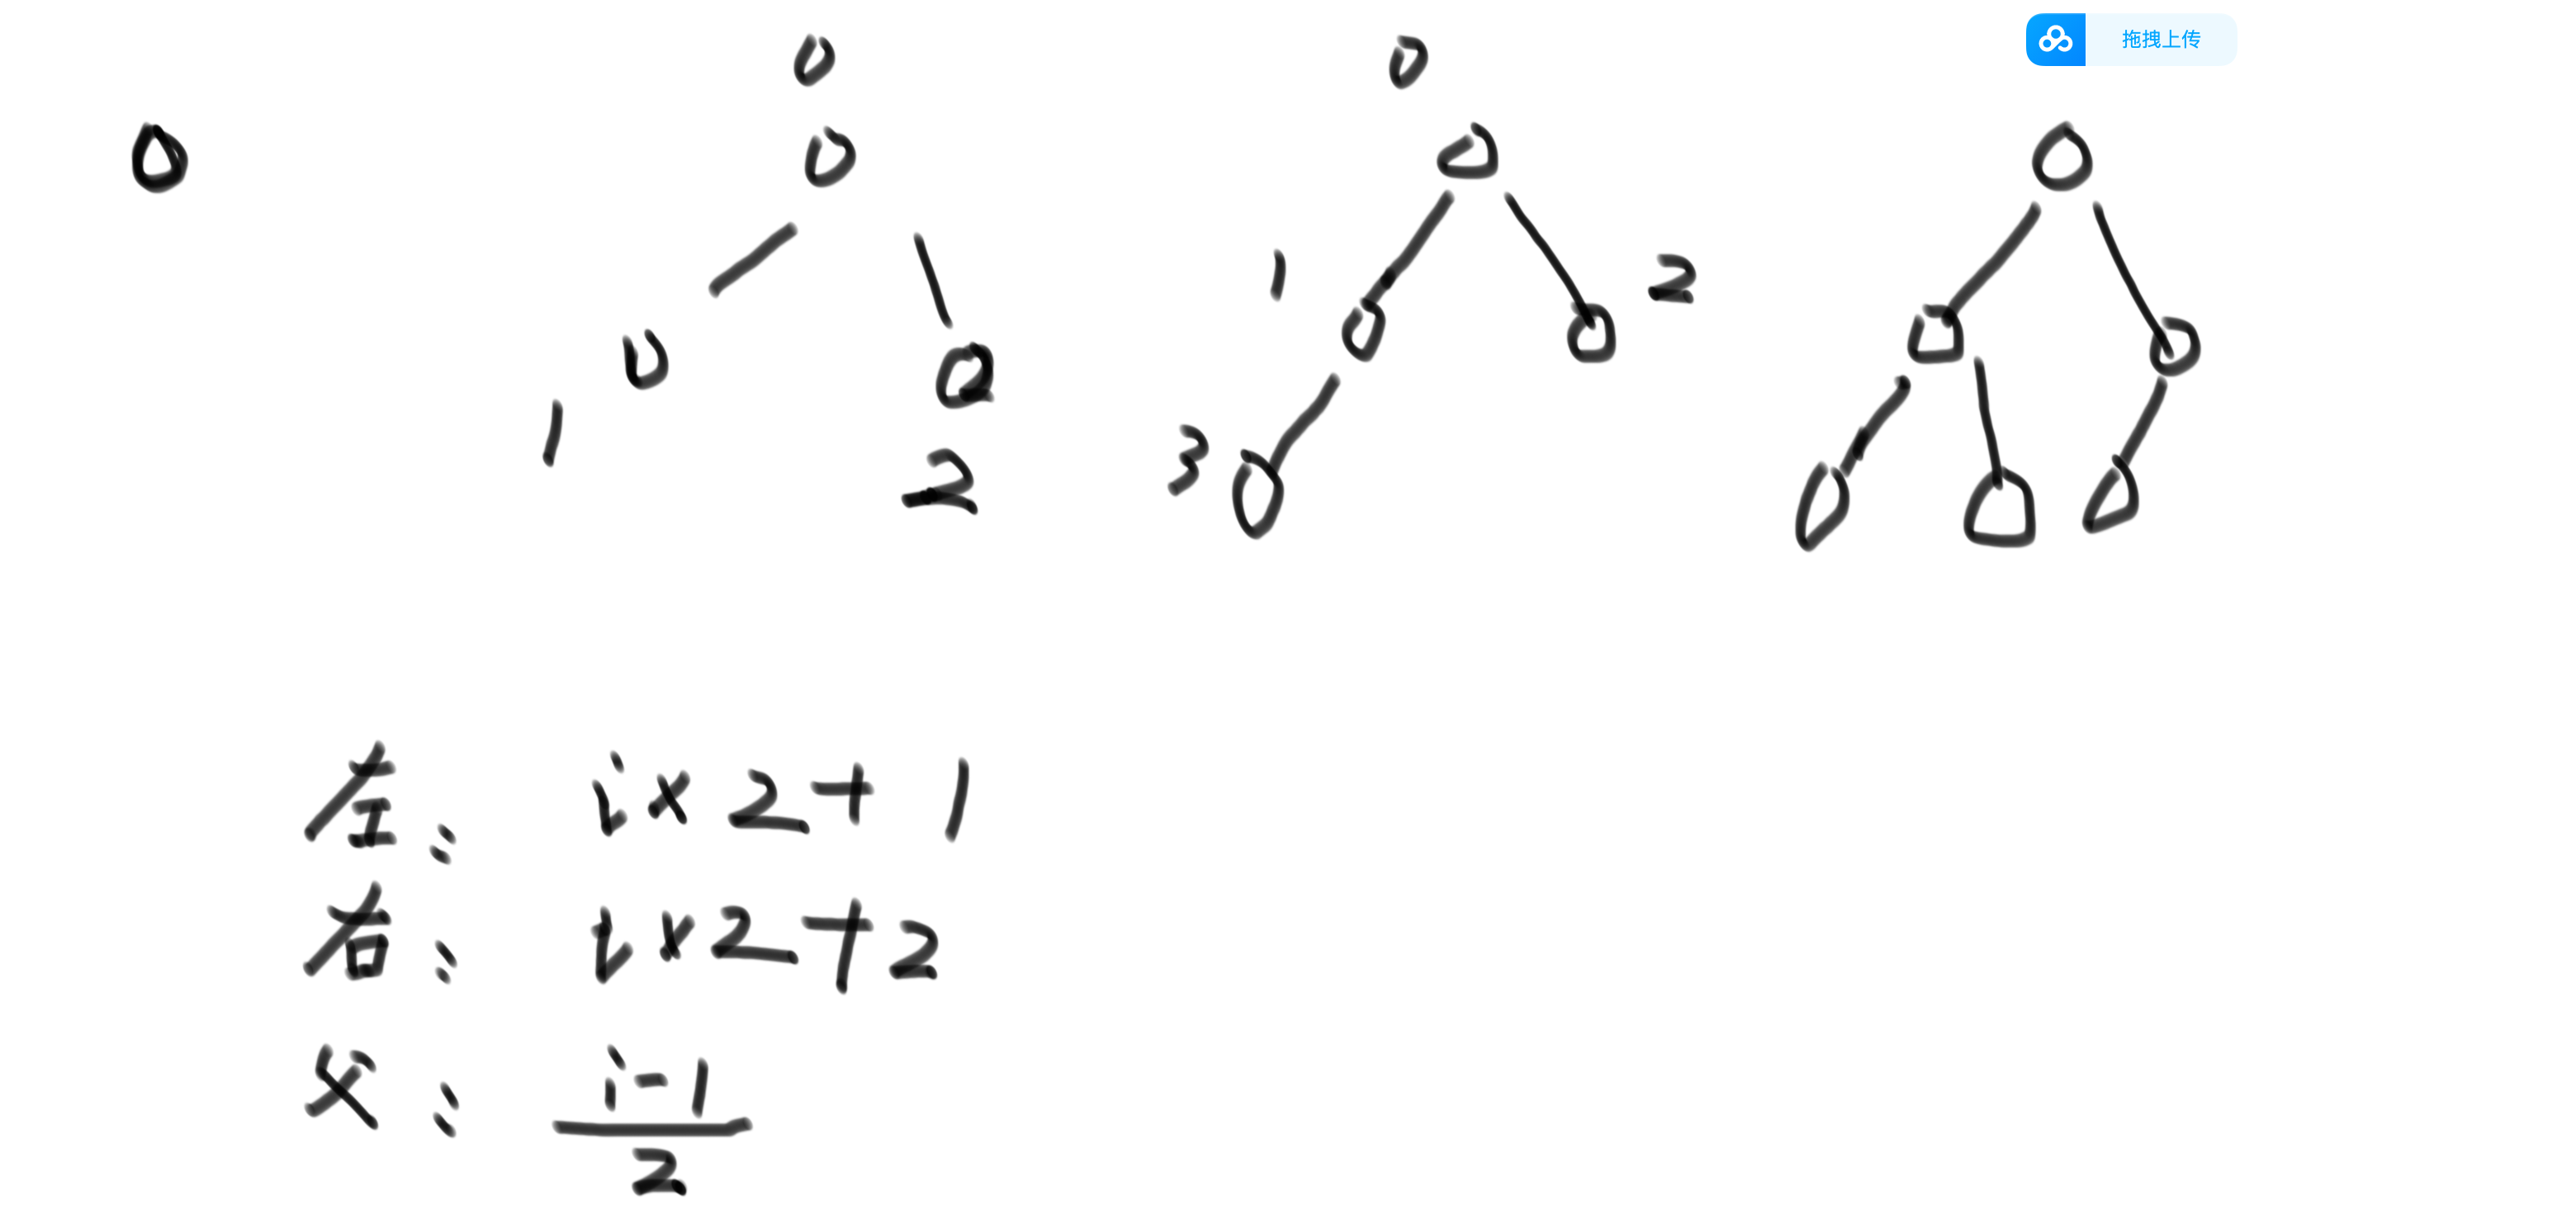 拖拽上传
0
0
1
2
1
2
3
左: i×2+1
右: i×2+2
父: i-1
2